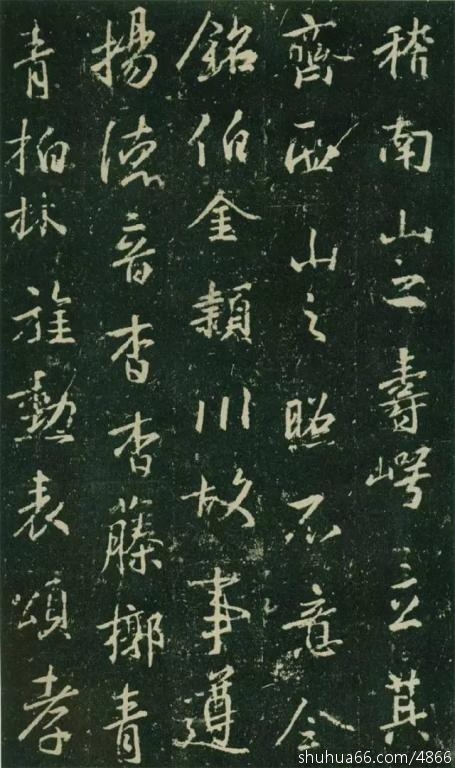 稽南山之壽崿立其
齊西山之照不意令
銘伯金潁川故事遵
揚德音杳杳藤槨青
青柏林旌勲表頌孝
shuhua66.com/4866